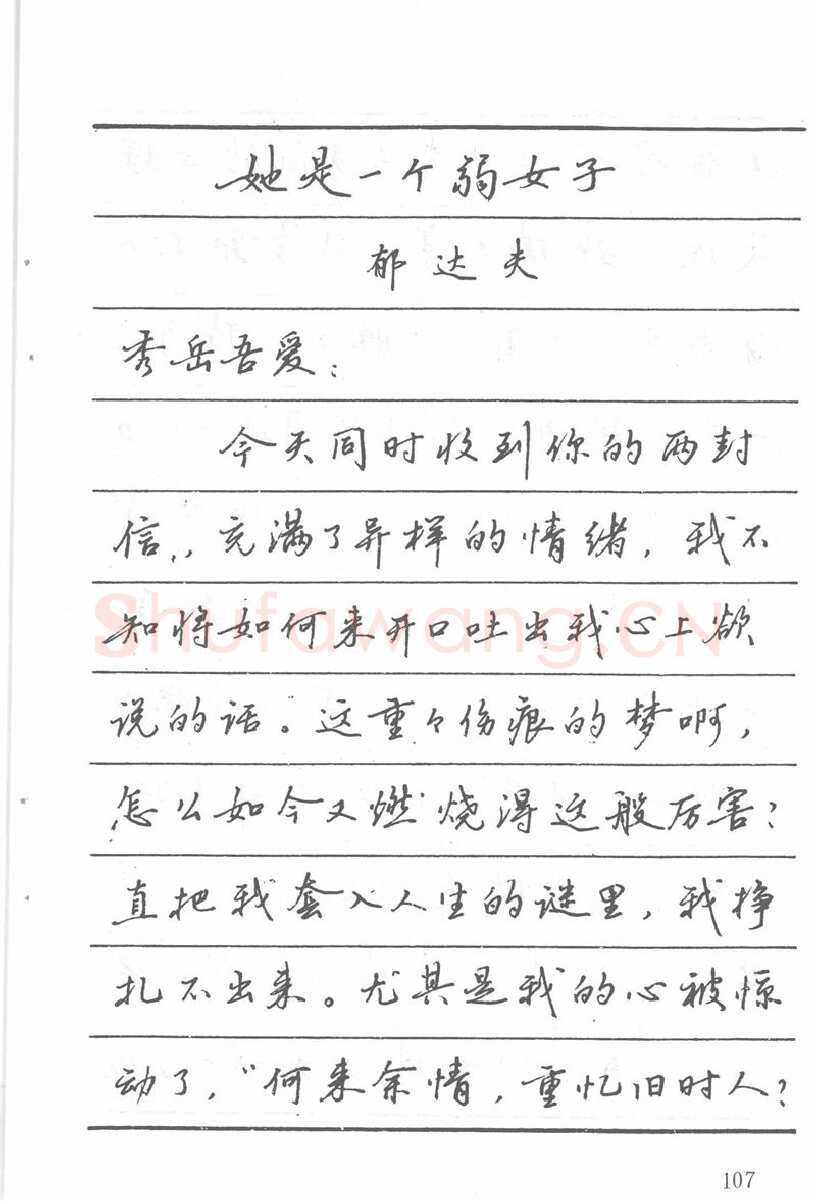 她是一个弱女子
郁达夫
秀岳吾爱：
今天同时收到你的两封
信，充满了异样的情绪，我不
知将如何来开口吐出我心上欲
说的话。这重々伤痕的梦啊，
怎么如今又燃烧得这般厉害？
直把我套入人生的谜里，我挣
扎不出来。尤其是我的心被惊
动了，“何来余情，重忆旧时人？
Shufawang.CN
107